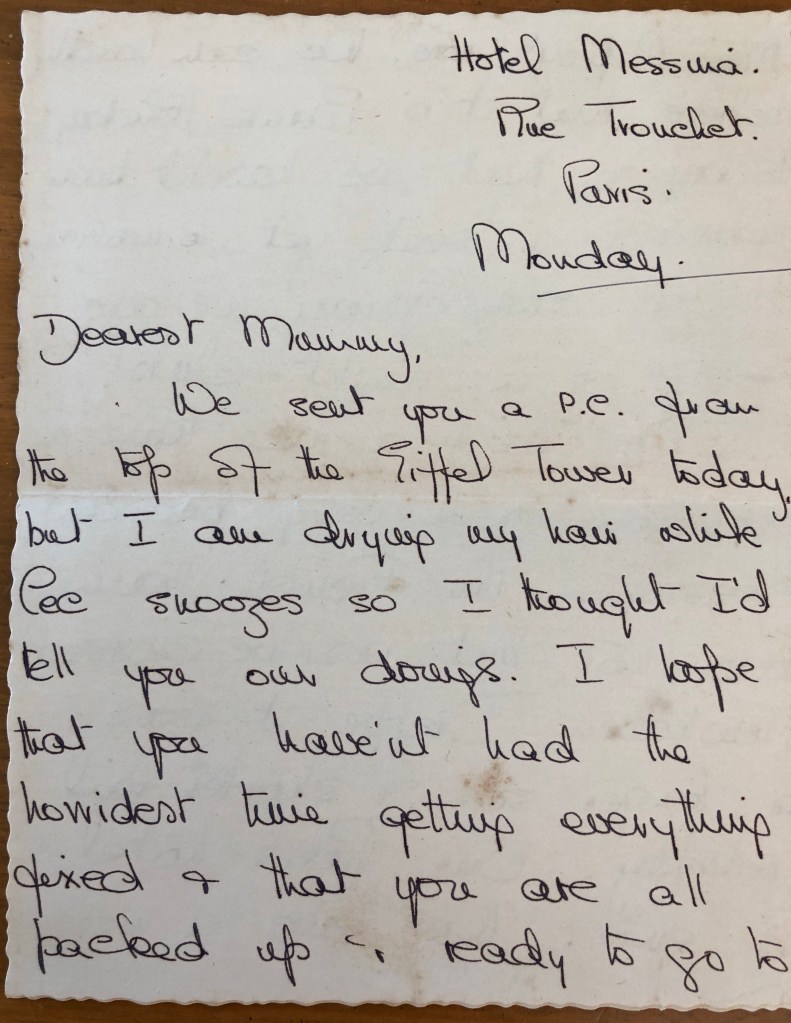 Hotel Messina.
Rue Tronchet.
Paris.
Monday.
Dearest Mummy,
We sent you a P.C. from
the top of the Eiffel Tower today,
but I am drying my hair while
Cec snoozes so I thought I'd
tell you our doings. I hope
that you have'nt had the
horridest time getting everything
fixed & that you are all
packed up & ready to go to